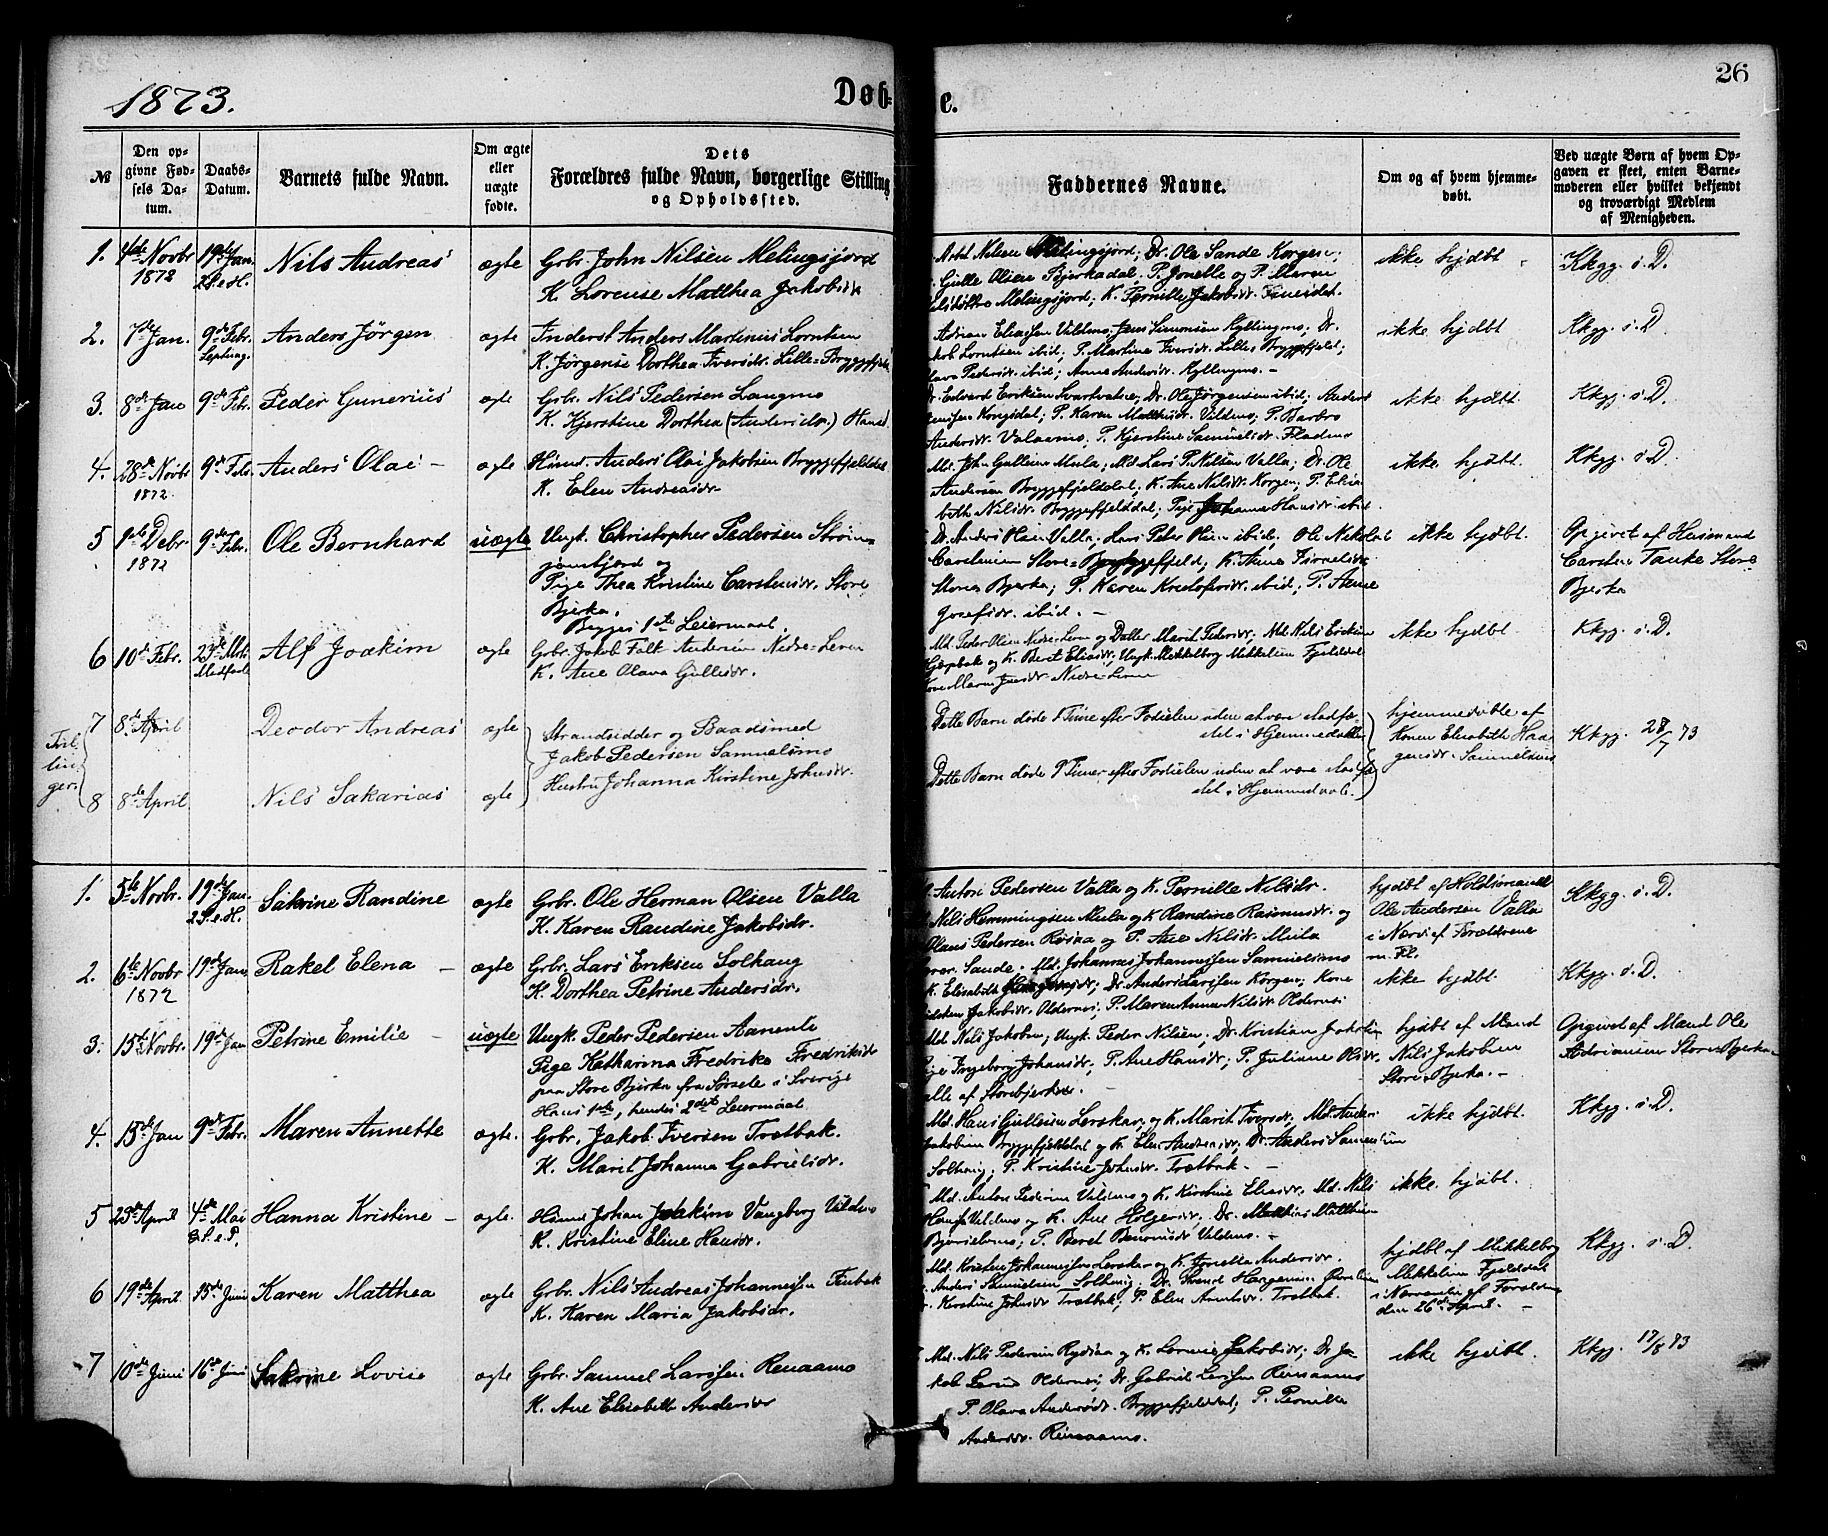 1873.
Døb-
e.
26
№
Den op-
givne Fød-
sels Da-
tum.
Daabs-
Datum.
Barnets fulde Navn.
Om ægte
eller
uægte
fødte.
Dets
Forældres fulde Navn, borgerlige Stilling
og Opholdssted.
Faddernes Navne.
Om og af hvem hjemme-
døbt.
Ved uægte Børn af hvem Op-
gaven er skeet, enten Barne-
moderen eller hvilket bekjendt
og troværdigt Medlem
af Menigheden.
1. 4de Novbr 1872 19de Jan. 2 S. e. H. Nils Andreas ægte Grbr. John Nilsen Melingsjord
K. Lorense Matthea Jakobsdr
Melingsjord; Dr. Ole Sande Korgen;
Gulle Olsen Bjerkadal, P. Jonette og P. Maren
Melingsjord; K. Pernille Jakobsdr. Finesidet.
ikke hjdbt
Kkgg. s. D.
2. 7de Jan. 9de Febr. Anders Jörgen ægte Inderst Anders Martinus Lorntsen
K. Jörgense Dorthea Iversdr. Lille-Bryggfjeld
Adrian Eliassen Vildmo; Jens Simonsen Kyllingmo; Dr.
Lorntsen ibid; P. Martine Iversdr. Lille Bryggfjeld;
Pedersdr. ibid; Anne Andersdr. Kyllingmo. –
ikke hjdbt
Kkgg. s. D
3. 8de Jan 9de Febr. Peder Gunerius ægte Grbr. Nils Pedersen Langmo
K. Kjerstine Dorthea (Andersdr.) Hansd.
Dr. Edvard Eriksen Svartvatne; Dr. Ole Jörgensen ibid; Anders
Kongsdal; P. Karen Matthisdr. Vildmo; P. Barbro
Andersdr. Valaamo; P. Kjerstine Samuelsdr. Fladmo
ikke hjdbt
Kkgg. s. D.
4. 28de Novbr 1872. 9de Febr Anders Olai – ægte Husmd. Anders Olai Jakobsen Bryggefjelddal
K. Elen Andreasdr
Md. John Gullesen Mula; Md. Lars P. Nilsen Valla; Dr. Ole
Andersen Bryggefjeldal; K. Ane Nilsdr. Korgen; P. Elisa-
beth Nilsdr. Bryggefjeldal; Pige Johanna Hansdr ibid.
ikke hjdbt.
Kkgg. s. D.
5 1ste Debr. 1872 9de Febr. Ole Bernhard uægte Ungk. Christopher Pedersen
og
Pige Thea Kristine Carstensdr. Store
Bjerka.
Begges 1ste Leiermaal.
Dr. Anders Valla; Hans Peter ibid; Ole Nikolai
Carstensen Store-Bryggefjeld; K. Anne
Store Bjerka; P. Karen Kristofersdr. ibid; P. Anne
Josefsdr. ibid. –
ikke hjdbt.
Opgivet af Husmand
Carsten Tanke Store
Bjerka
6 10de Febr. 23de Marts Alf Joakim ægte Grbr. Jakob Falk Andersen Nedre-Leren
K. Ane Olava Gullesdr.
Md. Peder Olsen Nedre-Leren og Datter Marit Pedersdr; Md. Nils Eriksen
og K. Beret Eliasdr; Ungk. Mikkelborg Mikkelsen Fjelddal
Kone Maren Jensdr. Nedre-Leren
ikke hjdbt
Kkgg. s. D.
Tvil
lin-
ger:
7 8de April Deodor Andreas ægte
8 8de April Nils Sakarias ægte
Strandsidder og Baadsmed
Jakob Pedersen Samuelsmo
Hustru Johanna Kirstine Johnsdr.
Dette Barn døde 1 Time efter Fødselen uden at være stadfæ-
stet i Hjemmedaaben
Dette Barn døde 9 Timer efter Fødselen uden at være stadfæ
stet i Hjemmedaab.
hjemmedøbte af
Konen Elisabeth Haa
gensdr. Samuelsmo
Kkgg. 28/7 73
1. 5te Novbr. 19de Jan. 2 S. e. H. Sakrine Randine ægte Grbr. Ole Herman Olsen Valla
K. Karen Randine Jakobsdr.
Anton Pedersen Valla og K. Pernille Nilsdr.
Nils Hemmingsen Mula og K. Randine Rasmusdr. og
Olaus Pedersen Røsaa og P. Ane Nilsdr. Mula
hjdbt af Holdsmand
Ole Andersen Valla
i Nærv. af Forældrene
m. Fl.
Kkgg. s. D.
2. 6te Novbr 1872 19de Jan. Rakel Elena – ægte Grbr. Lars Eriksen Solhaug
K. Dorthea Petrine Andersdr.
Sande; Md. Johannes Johannessen Samuelsmo
K. Elisabeth Haagensdr; Dr. Anders Larssen Korgen; Kone
Jakobsdr. Oldernes; P. Maren Anna Nilsdr Oldernes
ikke hjdbt
Kkgg. s. D.
3. 15de Novbr. 19de Jan Petrine Emilie – uægte Ungk. Peder Pedersen Aanente
Pige Katharina Fredrike Fredriksdr
paa Store Bjerka fra Sorsele i Sverige
Hans 1ste, hendes 2det Leiermaal
Md. Nils Jakobsen; Ungk. Peder Nilsen; Dr. Kristian Jakobsen
Pige Ingeborg Johansdr; P. Ane Hansdr; P. Juliane Olsdr.
alle af Storebjerka. –
hjdbt af Mand
Nils Jakobsen
Store Bjerka. –
Opgivet af Mand Ole
Adriansen Store Bjerka
4. 15de Jan 9de Febr. Maren Annette ægte. Grbr. Jakob Iversen Trætbak.
K. Marit Johanna Gabrielsdr.
Md. Hans Gullesen Lerskar, og K. Marit Iversdr; Md. Anders
Jakobsen Bryggefjelddal og K. Elen Andreasdr; Dr. Anders Samuelsen
Solhaug; P. Kristine Johnsdr. Trætbak. –
ikke hjdbt.
Kkgg. s. D.
5 23de April 4de Mai 3. S. e. P. Hanna Kristine – ægte. Husmd Johan Joakim Vangberg Vildmo
K. Kristine Eline Hansdr.
Md. Anton Pedersen Vildmo og K. Kirstine Eliasdr. Md. Nils
Vildmo og K. Ane Holgersdr, Dr. Matthias Matthisen
P. Beret Vildmo. –
ikke hjdbt.
6 19de April. 15de Juni Karen Matthea ægte Grbr. Nils Andreas Johannessen Finbak
K. Karen Maria Jakobsdr.
Md. Kristen Johannessen Lerskar og K. Jonetta Andersdr.
Anders Samuelsen Solhaug; Dr.
Kirstine Johnsdr Trætbak; P. Elen Trætbak.
hjdbt af Mikkelborg
Mikkelsen Fjelddal
i Nærværelse af Forældrene
den 26de April. –
Kkgg. s. D.
7 10de Juni 16de Juni Sakrine Lovise ægte Grbr. Samuel Larssen Renaamo
K. Ane Elisabeth Andersdr
Md. Nils Pedersen Rydsaa og K. Lorense Jakobsdr; Dr Ja-
kob Oldernes; Dr. Gabriel Larssen Renaamo
P. Olava Andersdr. Bryggefjelddal; P. Pernille
Andersdr. Renaamo.
ikke hjdbt.
Kkgg. 17/8 73